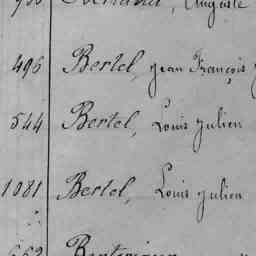 Auguste
496 Bertel, Jean François
544 Bertel, Louis Julien
1081 Bertel, Louis Julien